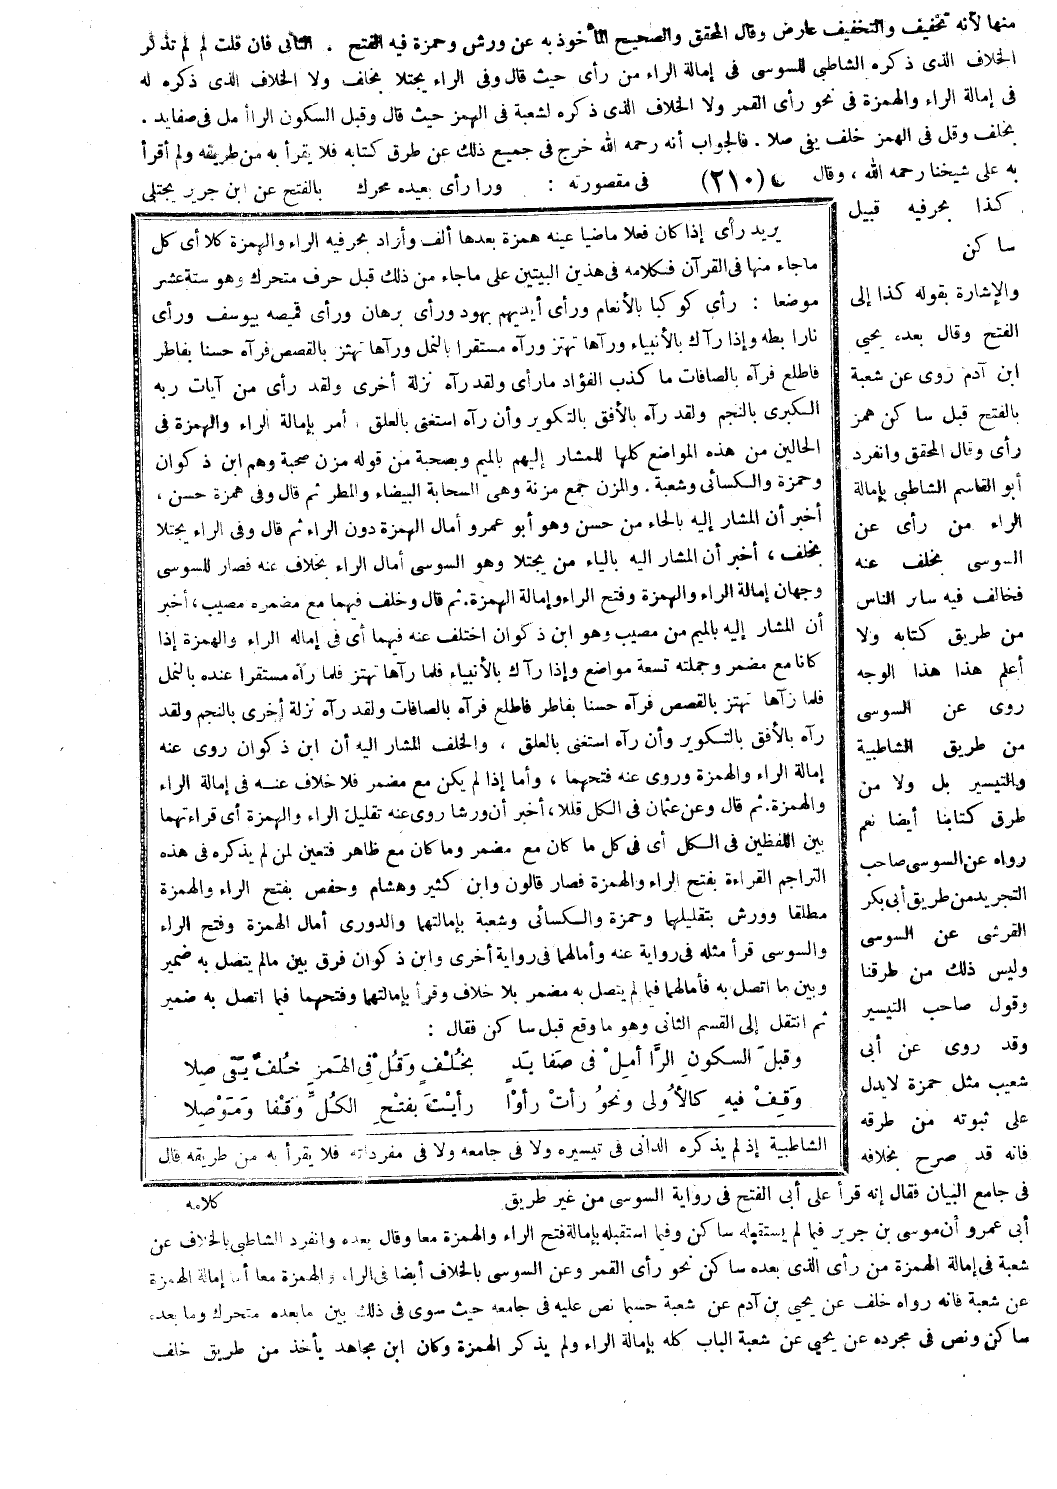 منها لأنه تخفيف والتخفيف عارض وقال المحقق والصحيح المأخوذ به عن ورش وحمزة فيه الفتح . الثانى فان قلت لم لم تذكر
الخلاف الذى ذكره الشاطبي للسوسى فى إمالة الراء من رأى حيث قال وفى الراء يجتلا بخلف ولا الخلاف الذى ذكره له
فى إمالة الراء والهمزة فى نحو رأى القمر ولا الخلاف الذى ذكره لشعبة فى الهمز حيث قال وقبل السكون الراأ مل فى صفايد .
بخلف وقل فى الهمز خلف يقى صلا . فالجواب أنه رحمه الله خرج فى جميع ذلك عن طرق كتابه فلا يقرأ به من طريقه ولم أقرأ
به على شيخنا رحمه الله ، وقال (٢١٠) فى مقصورته : ورا رأى بعيده محرك بالفتح عن ابن جرير يجتلى
كذا بحرفيه قبيل
ساكن
والإشارة بقوله كذا إلى
الفتح وقال بعده يحيى
ابن آدم روى عن شعبة
بالفتح قبل ساكن همز
رأى وقال المحقق وانفرد
أبو القاسم الشاطبي بإمالة
الراء من رأى عن
السوسى بخلف عنه
فخالف فيه سائر الناس
من طريق كتابه ولا
أعلم هذا هذا الوجه
روى عن السوسى
من طريق الشاطبية
والتيسير بل ولا من
طرق كتابنا أيضا نعم
رواه عن السوسى صاحب
التجريد من طريق أبى بكر
القرشى عن السوسى
وليس ذلك من طرقنا
وقول صاحب التيسير
وقد روى عن أبى
شعيب مثل حمزة لا يدل
على ثبوته من طرقه
فانه قد صرح بخلافه
يريد رأى إذا كان فعلا ماضيا عينه همزة بعدها ألف وأراد بحرفيه الراء والهمزة كلا أى كل
ماجاء منها فى القرآن فكلامه فى هذين البيتين على ماجاء من ذلك قبل حرف متحرك وهو ستة عشر
موضعا : رأى كوكبا بالأنعام ورأى أيديهم بهود ورأى برهان ورأى قميصه بيوسف ورأى
نارا بطه وإذا رآك بالأنبياء ورآها تهتز ورآه مستقرا بالنمل ورآها تهتز بالقصص فرآه حسنا بفاطر
فاطلع فرآه بالصافات ما كذب الفؤاد مارأى ولقد رآه نزلة أخرى ولقد رأى من آيات ربه
الكبرى بالنجم ولقد رآه بالأفق بالتكوير وأن رآه استغنى بالعلق ، أمر بإمالة الراء والهمزة فى
الحالين من هذه المواضع كلها للمشار إليهم بالميم وبصحبة من قوله مزن صحبة وهم ابن ذكوان
وحمزة والكسائى وشعبة . والمزن جمع مزنة وهى السحابة البيضاء والمطر ثم قال وفى همزة حسن ،
أخبر أن المشار إليه بالحاء من حسن وهو أبو عمرو أمال الهمزة دون الراء ثم قال وفى الراء يجتلا
بخلف ، أخبر أن المشار اليه بالياء من يجتلا وهو السوسى أمال الراء بخلاف عنه فصار للسوسى
وجهان إمالة الراء والهمزة وفتح الراء وإمالة الهمزة. ثم قال وخلف فيهما مع مضمره مصيب، أخبر
أن المشار إليه بالميم من مصيب وهو ابن ذكوان اختلف عنه فيهما أى فى إماله الراء والهمزة إذا
كانا مع مضمر وجملته تسعة مواضع وإذا رآك بالأنبياء فلما رآها تهتز فلما رآه مستقرا عنده بالنمل
فلما رآها تهتز بالقصص فرآه حسنا بفاطر فاطلع فرآه بالصافات ولقد رآه نزلة أخرى بالنجم ولقد
رآه بالأفق بالتكوير وأن رآه استغنى بالعلق ، والخلف المشار اليه أن ابن ذكوان روى عنه
إمالة الراء والهمزة وروى عنه فتحهما ، وأما إذا لم يكن مع مضمر فلا خلاف عنه فى إمالة الراء
والهمزة. ثم قال وعن عثمان فى الكل قللا، أخبر أن ورشا روى عنه تقليل الراء والهمزة أى قراءتهما
بين اللفظين فى الكل أى فى كل ما كان مع مضمر وما كان مع ظاهر فتعين لمن لم يذكره فى هذه
التراجم القراءة بفتح الراء والهمزة فصار قالون وابن كثير وهشام وحفص بفتح الراء والهمزة
مطلقا وورش بتقليلها وحمزة والكسائى وشعبة بإمالتهما والدورى أمال الهمزة وفتح الراء
والسوسى قرأ مثله فى رواية عنه وأمالهما فى رواية أخرى وابن ذكوان فرق بين مالم يتصل به ضمير
وبين ما اتصل به فأمالهما فيما لم يتصل به مضمر بلا خلاف وقرأ بإمالتهما وفتحهما فيما اتصل به ضمير
ثم انتقل إلى القسم الثانى وهو ما وقع قبل ساكن فقال :
وقبلَ السكونِ الرَّا أمِلْ فى صَفا يَدٍ بخُلْفٍ وَقُلْ فى الهَمزِ خُلفٌ يَقى صِلا
وَقِفْ فيهِ كالأُولى ونحوُ رأتْ رأوْا رأيْتَ بفتْحِ الكُلِّ وَقْفا وَمَوْصِلا
الشاطبية إذ لم يذكره الدانى فى تيسيره ولا فى جامعه ولا فى مفرداته فلا يقرأ به من طريقه قال
فى جامع البيان فقال إنه قرأ على أبى الفتح فى رواية السوسى من غير طريق كلامه
أبى عمرو أن موسى بن جرير فيما لم يستقبله ساكن وفيما استقبله بإمالة فتح الراء والهمزة معا وقال بعده وانفرد الشاطبى بالخلاف عن
شعبة فى إمالة الهمزة من رأى الذى بعده ساكن نحو رأى القمر وعن السوسى بالخلاف أيضا فى الراء والهمزة معا أما إمالة الهمزة
عن شعبة فانه رواه خلف عن يحيى بن آدم عن شعبة حسبما نص عليه فى جامعه حيث سوى فى ذلك بين مابعده متحرك وما بعده
ساكن ونص فى مجرده عن يحيى عن شعبة الباب كله بإمالة الراء ولم يذكر الهمزة وكان ابن مجاهد يأخذ من طريق خلف